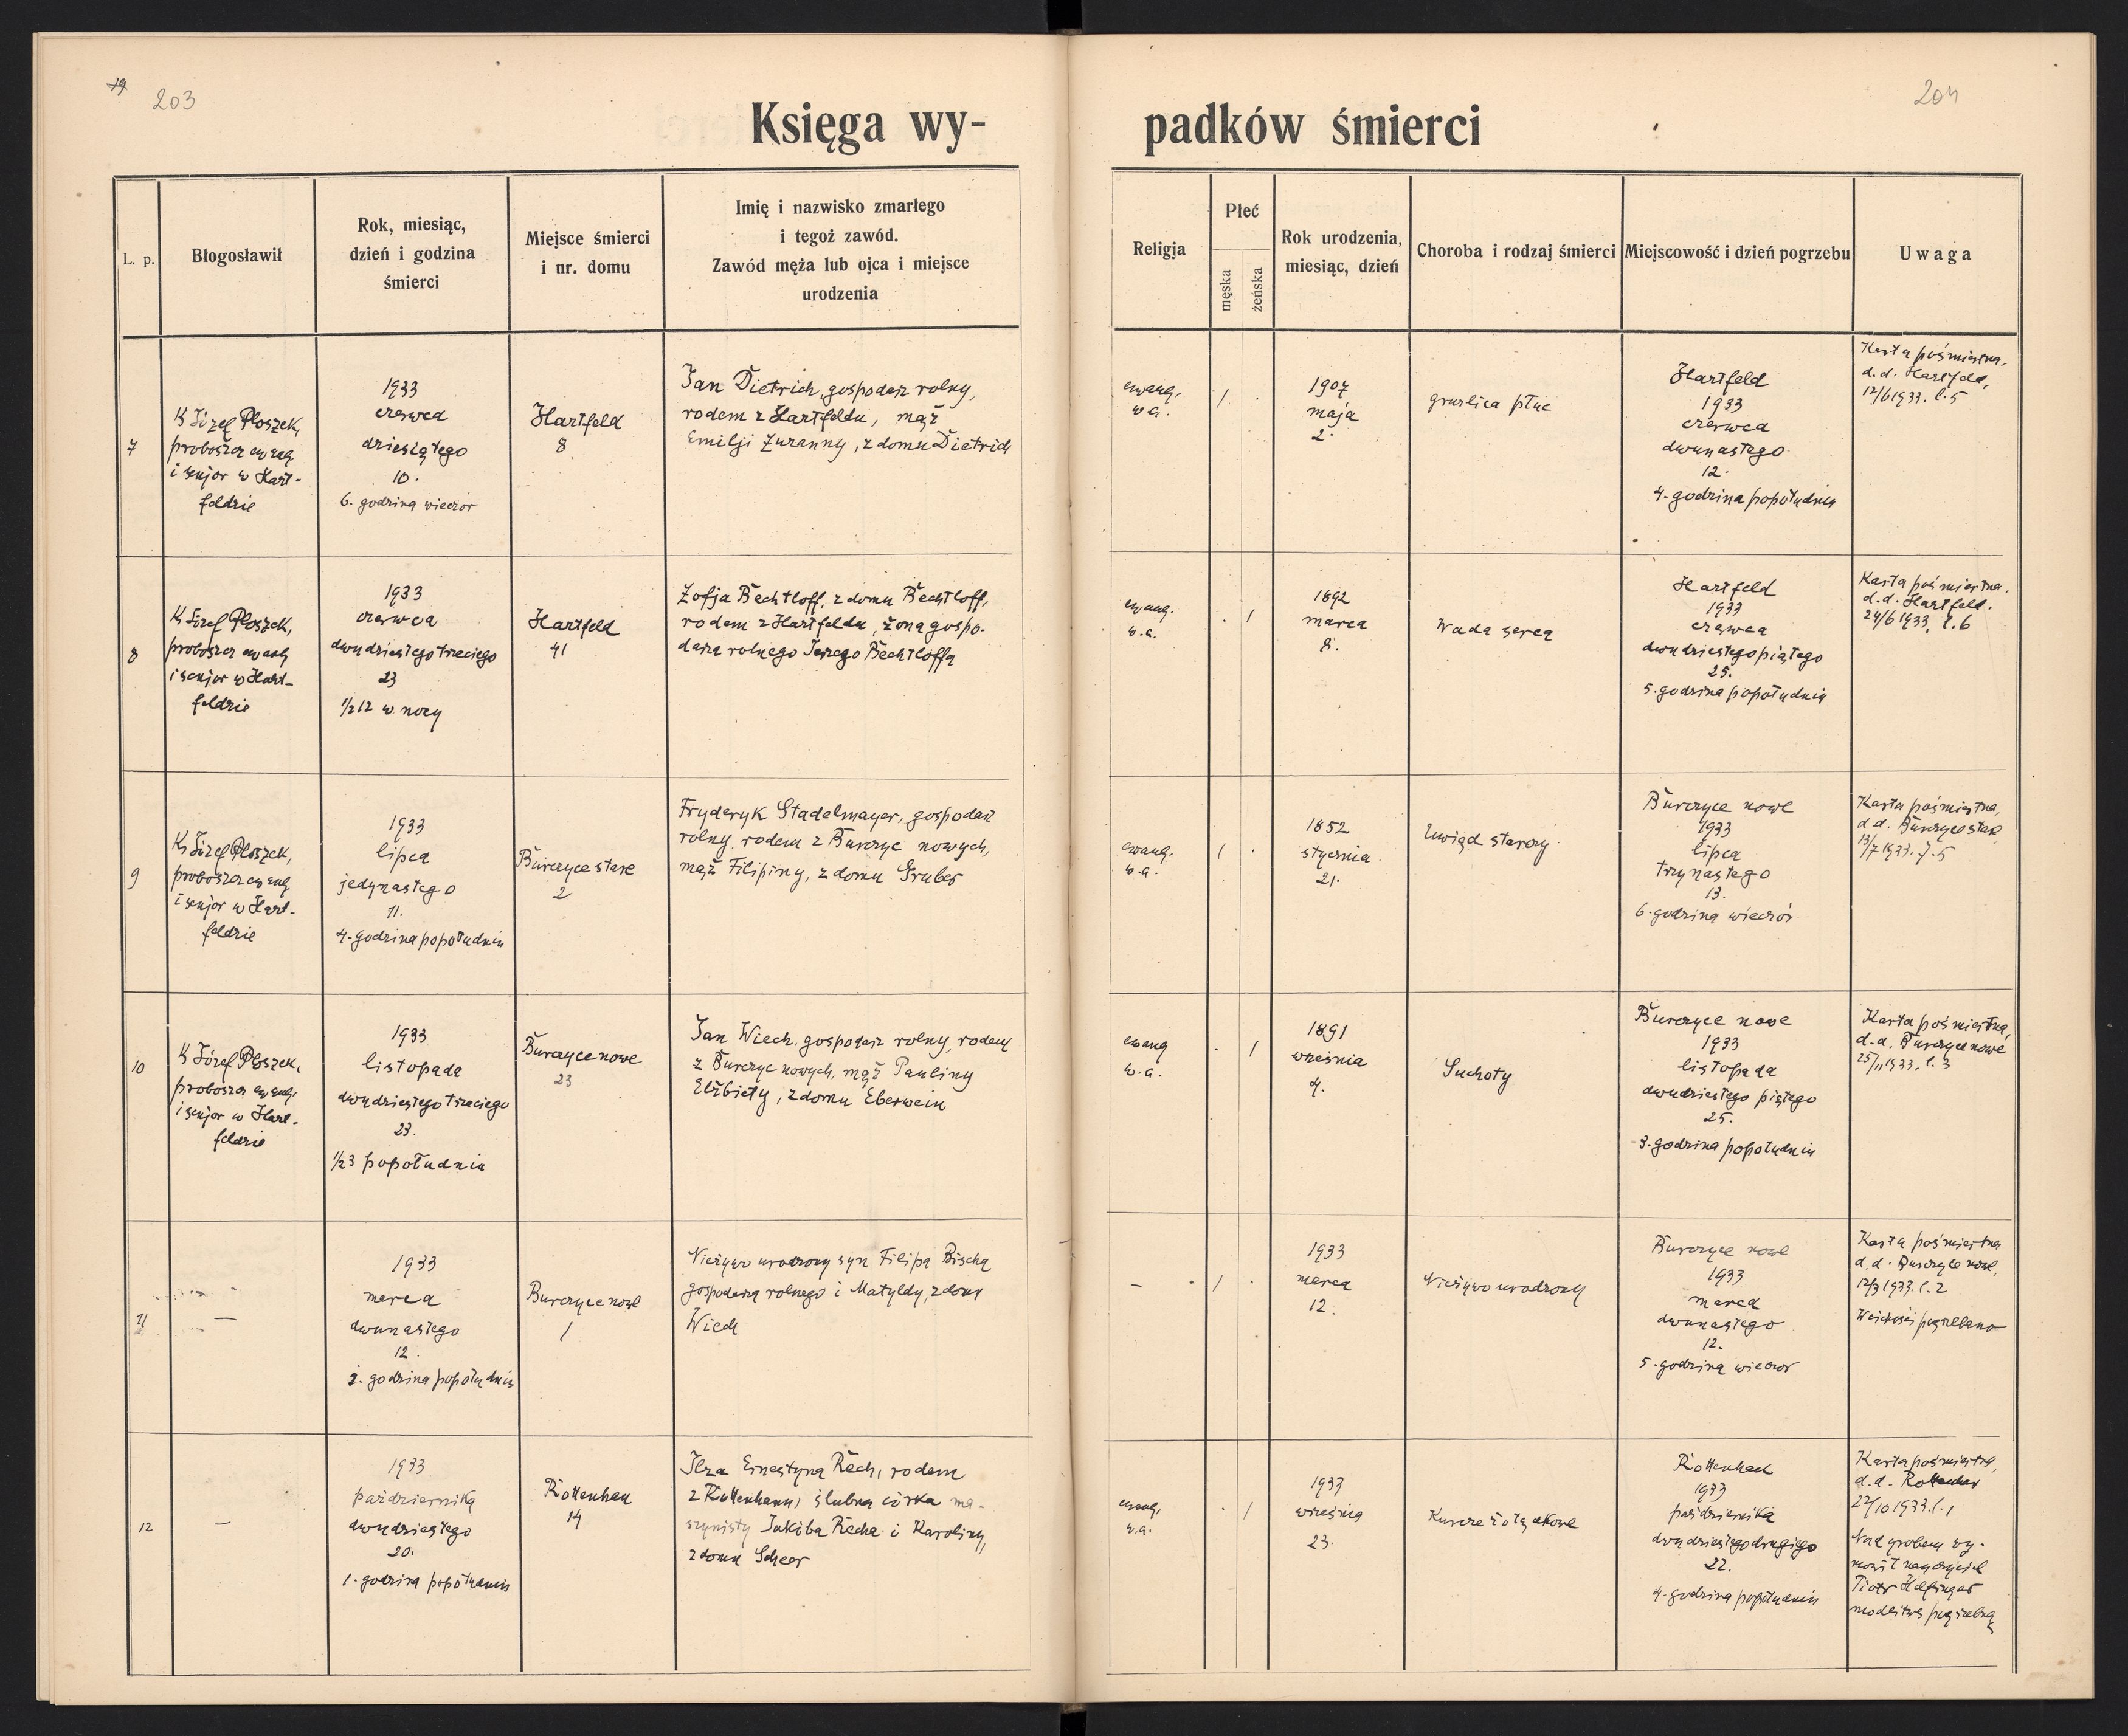 19 203
204
Księga wy-
padków śmierci
L. p.
Błogosławił
Rok, miesiąc,
dzień i godzina
śmierci
Miejsce śmierci
i nr. domu
Imię i nazwisko zmarłego
i tegoż zawód.
Zawód męża lub ojca i miejsce
urodzenia
Religja
Płeć
męska
żeńska
Rok urodzenia,
miesiąc, dzień
Choroba i rodzaj śmierci
Miejscowość i dzień pogrzebu
Uwaga
7
Ks Józef Płoszek,
proboszcz ewang
i senjor w Hart-
feldzie
1933
czerwca
dziesiątego
10.
6. godzina wieczór
Hartfeld
8
Jan Dietrich, gospodarz rolny,
rodem z Hartfeldu, mąż
Emilji Zuzanny, z domu Dietrich
ewang.
w.a.
1 .
1907
maja
2.
gruźlica płuc
Hartfeld
1933
czerwca
dwunastego
12.
4. godzina popołudniu
Karta pośmiertna.
d.d. Hartfeld,
12/6 1933. l. 5
8
Ks Józef Płoszek,
proboszcz ewang
i senjor w Hart-
feldzie
1933
czerwca
dwudziestego trzeciego
23
1/2 12 w nocy
Hartfeld
41
Zofja Bechtloff, z domu Bechtloff,
rodem z Hartfeldu, żona gospo-
darza rolnego Jerzego Bechtloffa
ewang.
w.a.
. 1
1892
marca
8.
Wada serca
Hartfeld
1933
czerwca
dwudziestego piątego
25.
5. godzina popołudniu
Karta pośmiertna.
d.d. Hartfeld.
24/6 1933. l. 6
9
Ks Józef Płoszek,
proboszcz ewang
i senjor w Hart-
feldzie
1933
lipca
jedynastego
11.
4. godzina popołudniu
Burczyce stare
2
Fryderyk Stadelmayer, gospodarz
rolny, rodem z Burczyc nowych,
mąż Filipiny, z domu Gruber
ewang.
w.a.
1 .
1852
stycznia
21.
Uwiąd starczy
Burczyce nowe
1933
lipca
trzynastego
13.
6. godzina wieczór
Karta pośmiertna,
d.d. Burczyce stare
13/7 1933. l. 5
10
Ks Józef Płoszek,
proboszcz ewang.
i senjor w Hart-
feldzie
1933
listopada
dwudziestego trzeciego
23.
1/2 3 popołudniu
Burczyce nowe
23
Jan Wiech, gospodarz rolny, rodem
z Burczyc nowych, mąż Pauliny
Elżbiety, z domu Eberwein
ewang
w.a.
. 1
1891
września
4.
Suchoty
Burczyce nowe
1933
listopada
dwudziestego piątego
25.
3. godzina popołudniu
Karta pośmiertna,
d.d. Burczyce nowe
25/11 1933. l. 3
11
—
1933
marca
dwunastego
12.
2. godzina popołudniu
Burczyce nowe
1
Nieżywo urodzony syn Filipa Bischa
gospodarza rolnego i Matyldy, z domu
Wiech
—
1 .
1933
marca
12.
Nieżywo urodzony
Burczyce nowe
1933
marca
dwunastego
12.
5. godzina wieczór
Karta pośmiertna
d.d. Burczyce nowe,
12/3 1933. l. 2
pogrzebano
12
—
1933
października
dwudziestego
20.
1. godzina popołudniu
Rottenhan
14
Ilza Ernestyna Rech, rodem
z Rottenhanu, ślubna córka ma-
szynisty Jakóba Recha i Karoliny,
z domu Scheer
ewang.
w.a.
. 1
1933
września
23.
Kurcze żołądkowe
Rottenhan
1933
października
dwudziestego drugiego
22.
4. godzina popołudniu
Karta pośmiertna,
d.d. Rottenhan
22/10 1933. l. 1
Nad grobem wy-
mówił nauczyciel
Piotr Helfinger
modlitwę pogrzebną